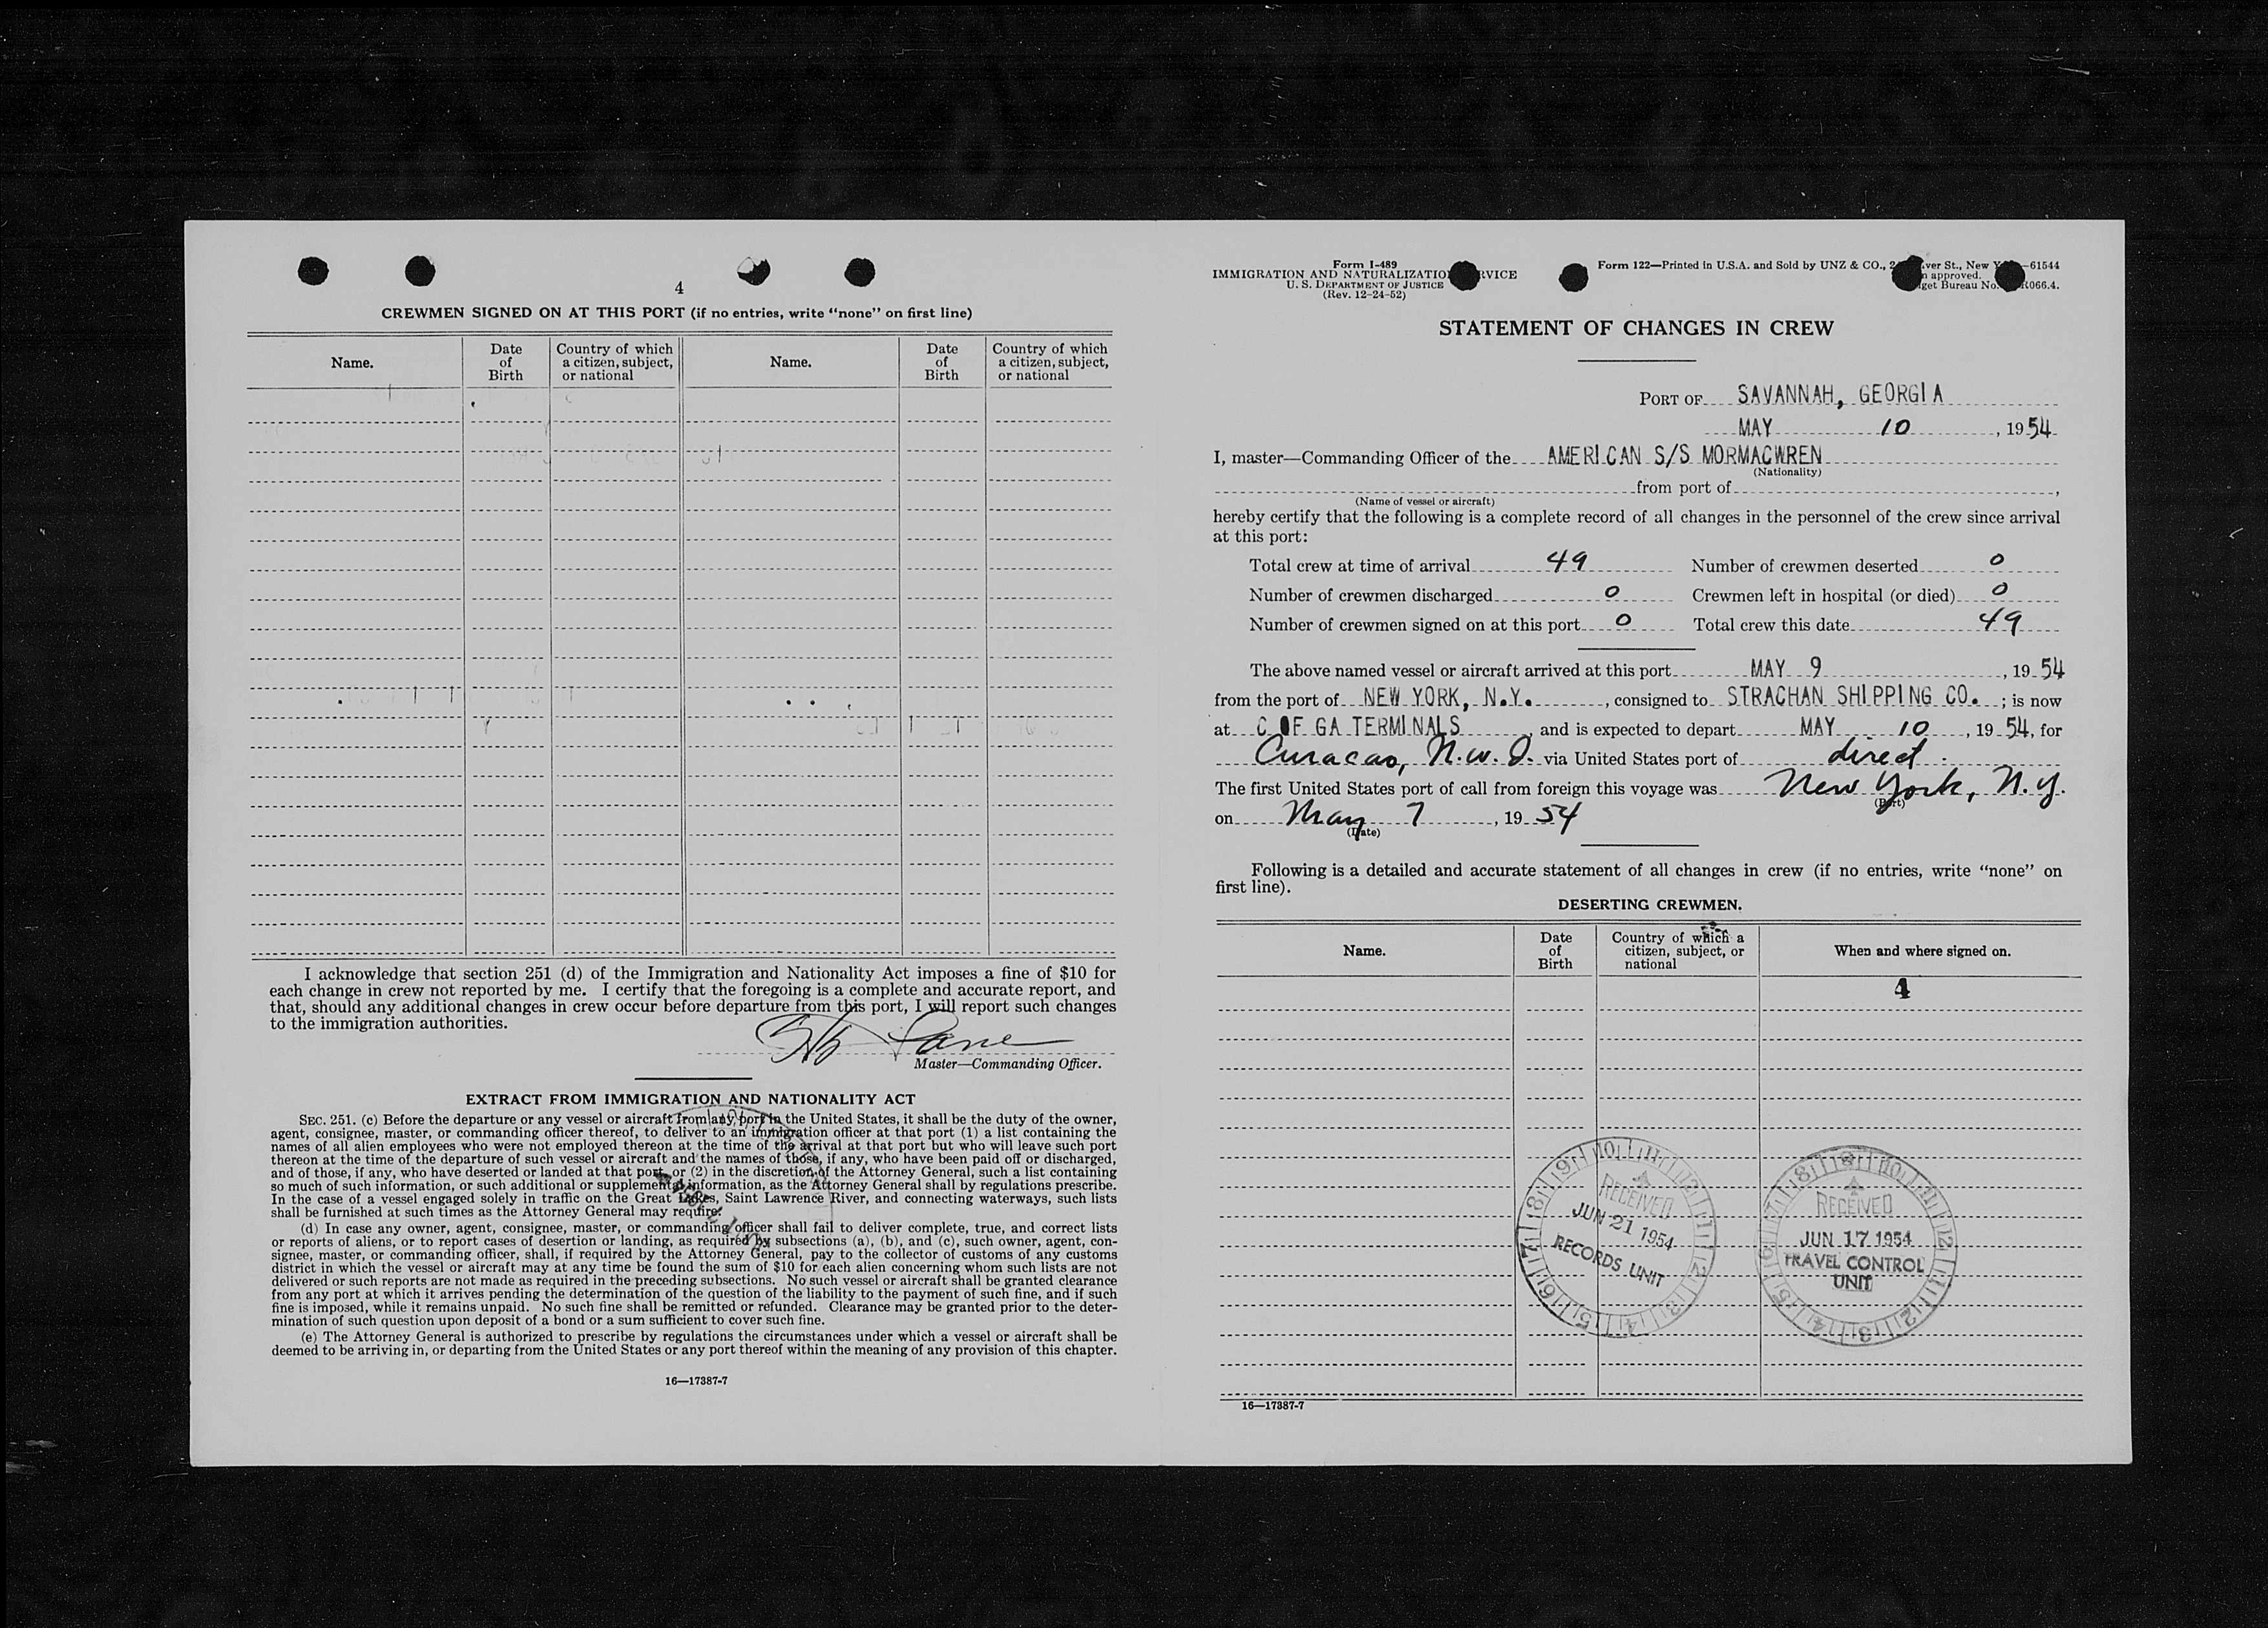 4
CREWMEN SIGNED ON AT THIS PORT (if no entries, write “none” on first line)
Name. Date of Birth Country of which a citizen, subject, or national Name. Date of Birth Country of which a citizen, subject, or national
I acknowledge that section 251 (d) of the Immigration and Nationality Act imposes a fine of $10 for
each change in crew not reported by me. I certify that the foregoing is a complete and accurate report, and
that, should any additional changes in crew occur before departure from this port, I will report such changes
to the immigration authorities.
Lane
Master—Commanding Officer.
EXTRACT FROM IMMIGRATION AND NATIONALITY ACT
SEC. 251. (c) Before the departure or any vessel or aircraft from any port in the United States, it shall be the duty of the owner,
agent, consignee, master, or commanding officer thereof, to deliver to an immigration officer at that port (1) a list containing the
names of all alien employees who were not employed thereon at the time of the arrival at that port but who will leave such port
thereon at the time of the departure of such vessel or aircraft and the names of those, if any, who have been paid off or discharged,
and of those, if any, who have deserted or landed at that port, or (2) in the discretion of the Attorney General, such a list containing
so much of such information, or such additional or supplemental information, as the Attorney General shall by regulations prescribe.
In the case of a vessel engaged solely in traffic on the Great Lakes, Saint Lawrence River, and connecting waterways, such lists
shall be furnished at such times as the Attorney General may require.
(d) In case any owner, agent, consignee, master, or commanding officer shall fail to deliver complete, true, and correct lists
or reports of aliens, or to report cases of desertion or landing, as required by subsections (a), (b), and (c), such owner, agent, con-
signee, master, or commanding officer, shall, if required by the Attorney General, pay to the collector of customs of any customs
district in which the vessel or aircraft may at any time be found the sum of $10 for each alien concerning whom such lists are not
delivered or such reports are not made as required in the preceding subsections. No such vessel or aircraft shall be granted clearance
from any port at which it arrives pending the determination of the question of the liability to the payment of such fine, and if such
fine is imposed, while it remains unpaid. No such fine shall be remitted or refunded. Clearance may be granted prior to the deter-
mination of such question upon deposit of a bond or a sum sufficient to cover such fine.
(e) The Attorney General is authorized to prescribe by regulations the circumstances under which a vessel or aircraft shall be
deemed to be arriving in, or departing from the United States or any port thereof within the meaning of any provision of this chapter.
16—17387-7
Form I-489
IMMIGRATION AND NATURALIZATIO RVICE
U. S. DEPARTMENT OF JUSTICE
(Rev. 12-24-52)
Form 122—Printed in U.S.A. and Sold by UNZ & CO., 2 ver St., New Y —61544
n approved.
get Bureau No. R066.4.
STATEMENT OF CHANGES IN CREW
PORT OF SAVANNAH, GEORGIA
MAY 10, 1954
I, master—Commanding Officer of the AMERICAN S/S MORMACWREN
(Nationality)
from port of ,
(Name of vessel or aircraft)
hereby certify that the following is a complete record of all changes in the personnel of the crew since arrival
at this port:
Total crew at time of arrival 49 Number of crewmen deserted 0
Number of crewmen discharged 0 Crewmen left in hospital (or died) 0
Number of crewmen signed on at this port 0 Total crew this date 49
The above named vessel or aircraft arrived at this port MAY 9, 1954
from the port of NEW YORK, N.Y., consigned to STRACHAN SHIPPING CO. ; is now
at C OF GA TERMINALS, and is expected to depart MAY 10, 1954, for
Curacao, N.W.I. via United States port of direct.
The first United States port of call from foreign this voyage was New York, N.Y.
(Port)
on May 7, 1954
(Date)
Following is a detailed and accurate statement of all changes in crew (if no entries, write “none” on
first line).
DESERTING CREWMEN.
Name. Date of Birth Country of which a citizen, subject, or national When and where signed on.
4
RECEIVED
JUN 21 1954
RECORDS UNIT
RECEIVED
JUN 17 1954
TRAVEL CONTROL
UNIT
16—17387-7